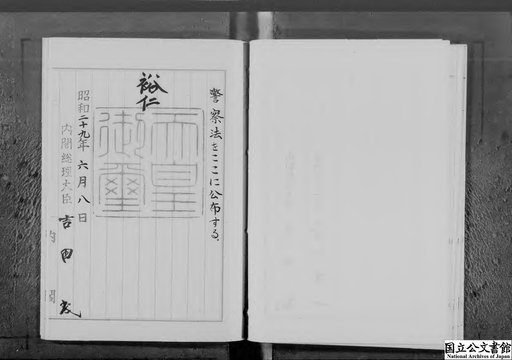 警察法をここに公布する。
裕仁
天皇御璽
昭和二十九年六月八日
内閣総理大臣 吉田茂
内閣
国立公文書館
National Archives of Japan